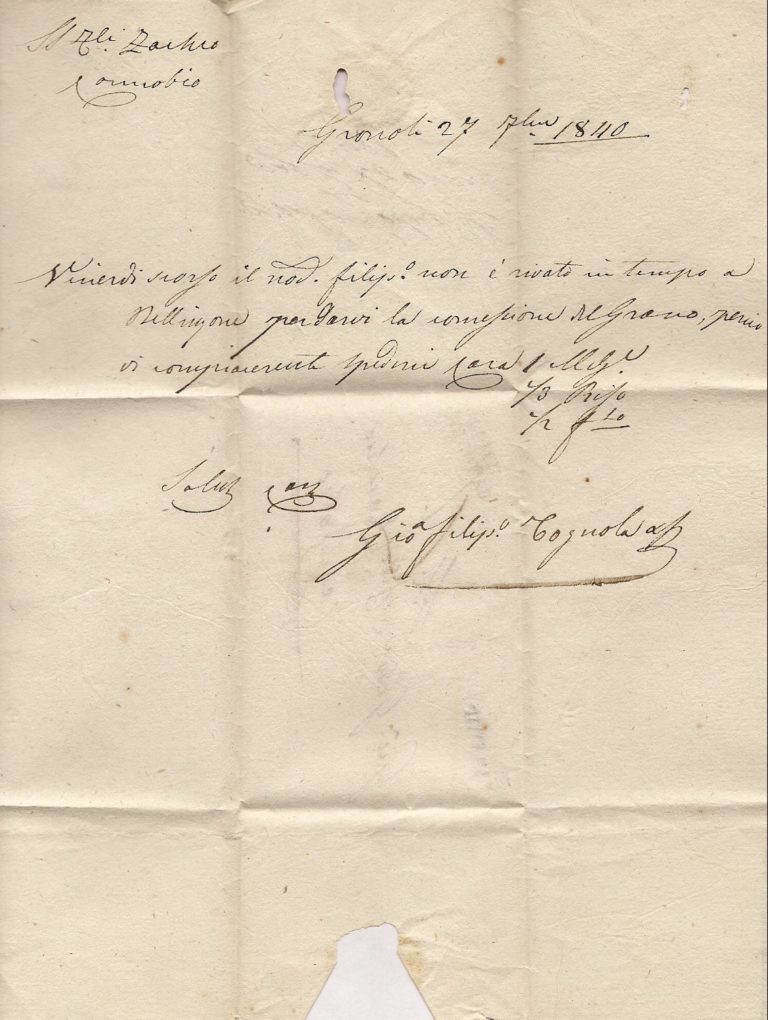 SS Fli. Zaccheo
Cannobio
Grono li 27 7bre 1840
Venerdi scorso il nod. filip.o non è rivato in tempo a
Bellinzone per darvi la comessione del Grano, perciò
vi compiacerete spedirmi Cara 1 Mel.
1/3 Riso
1/2 f.to
Salut Cari
Gio.a filip.o Tognola